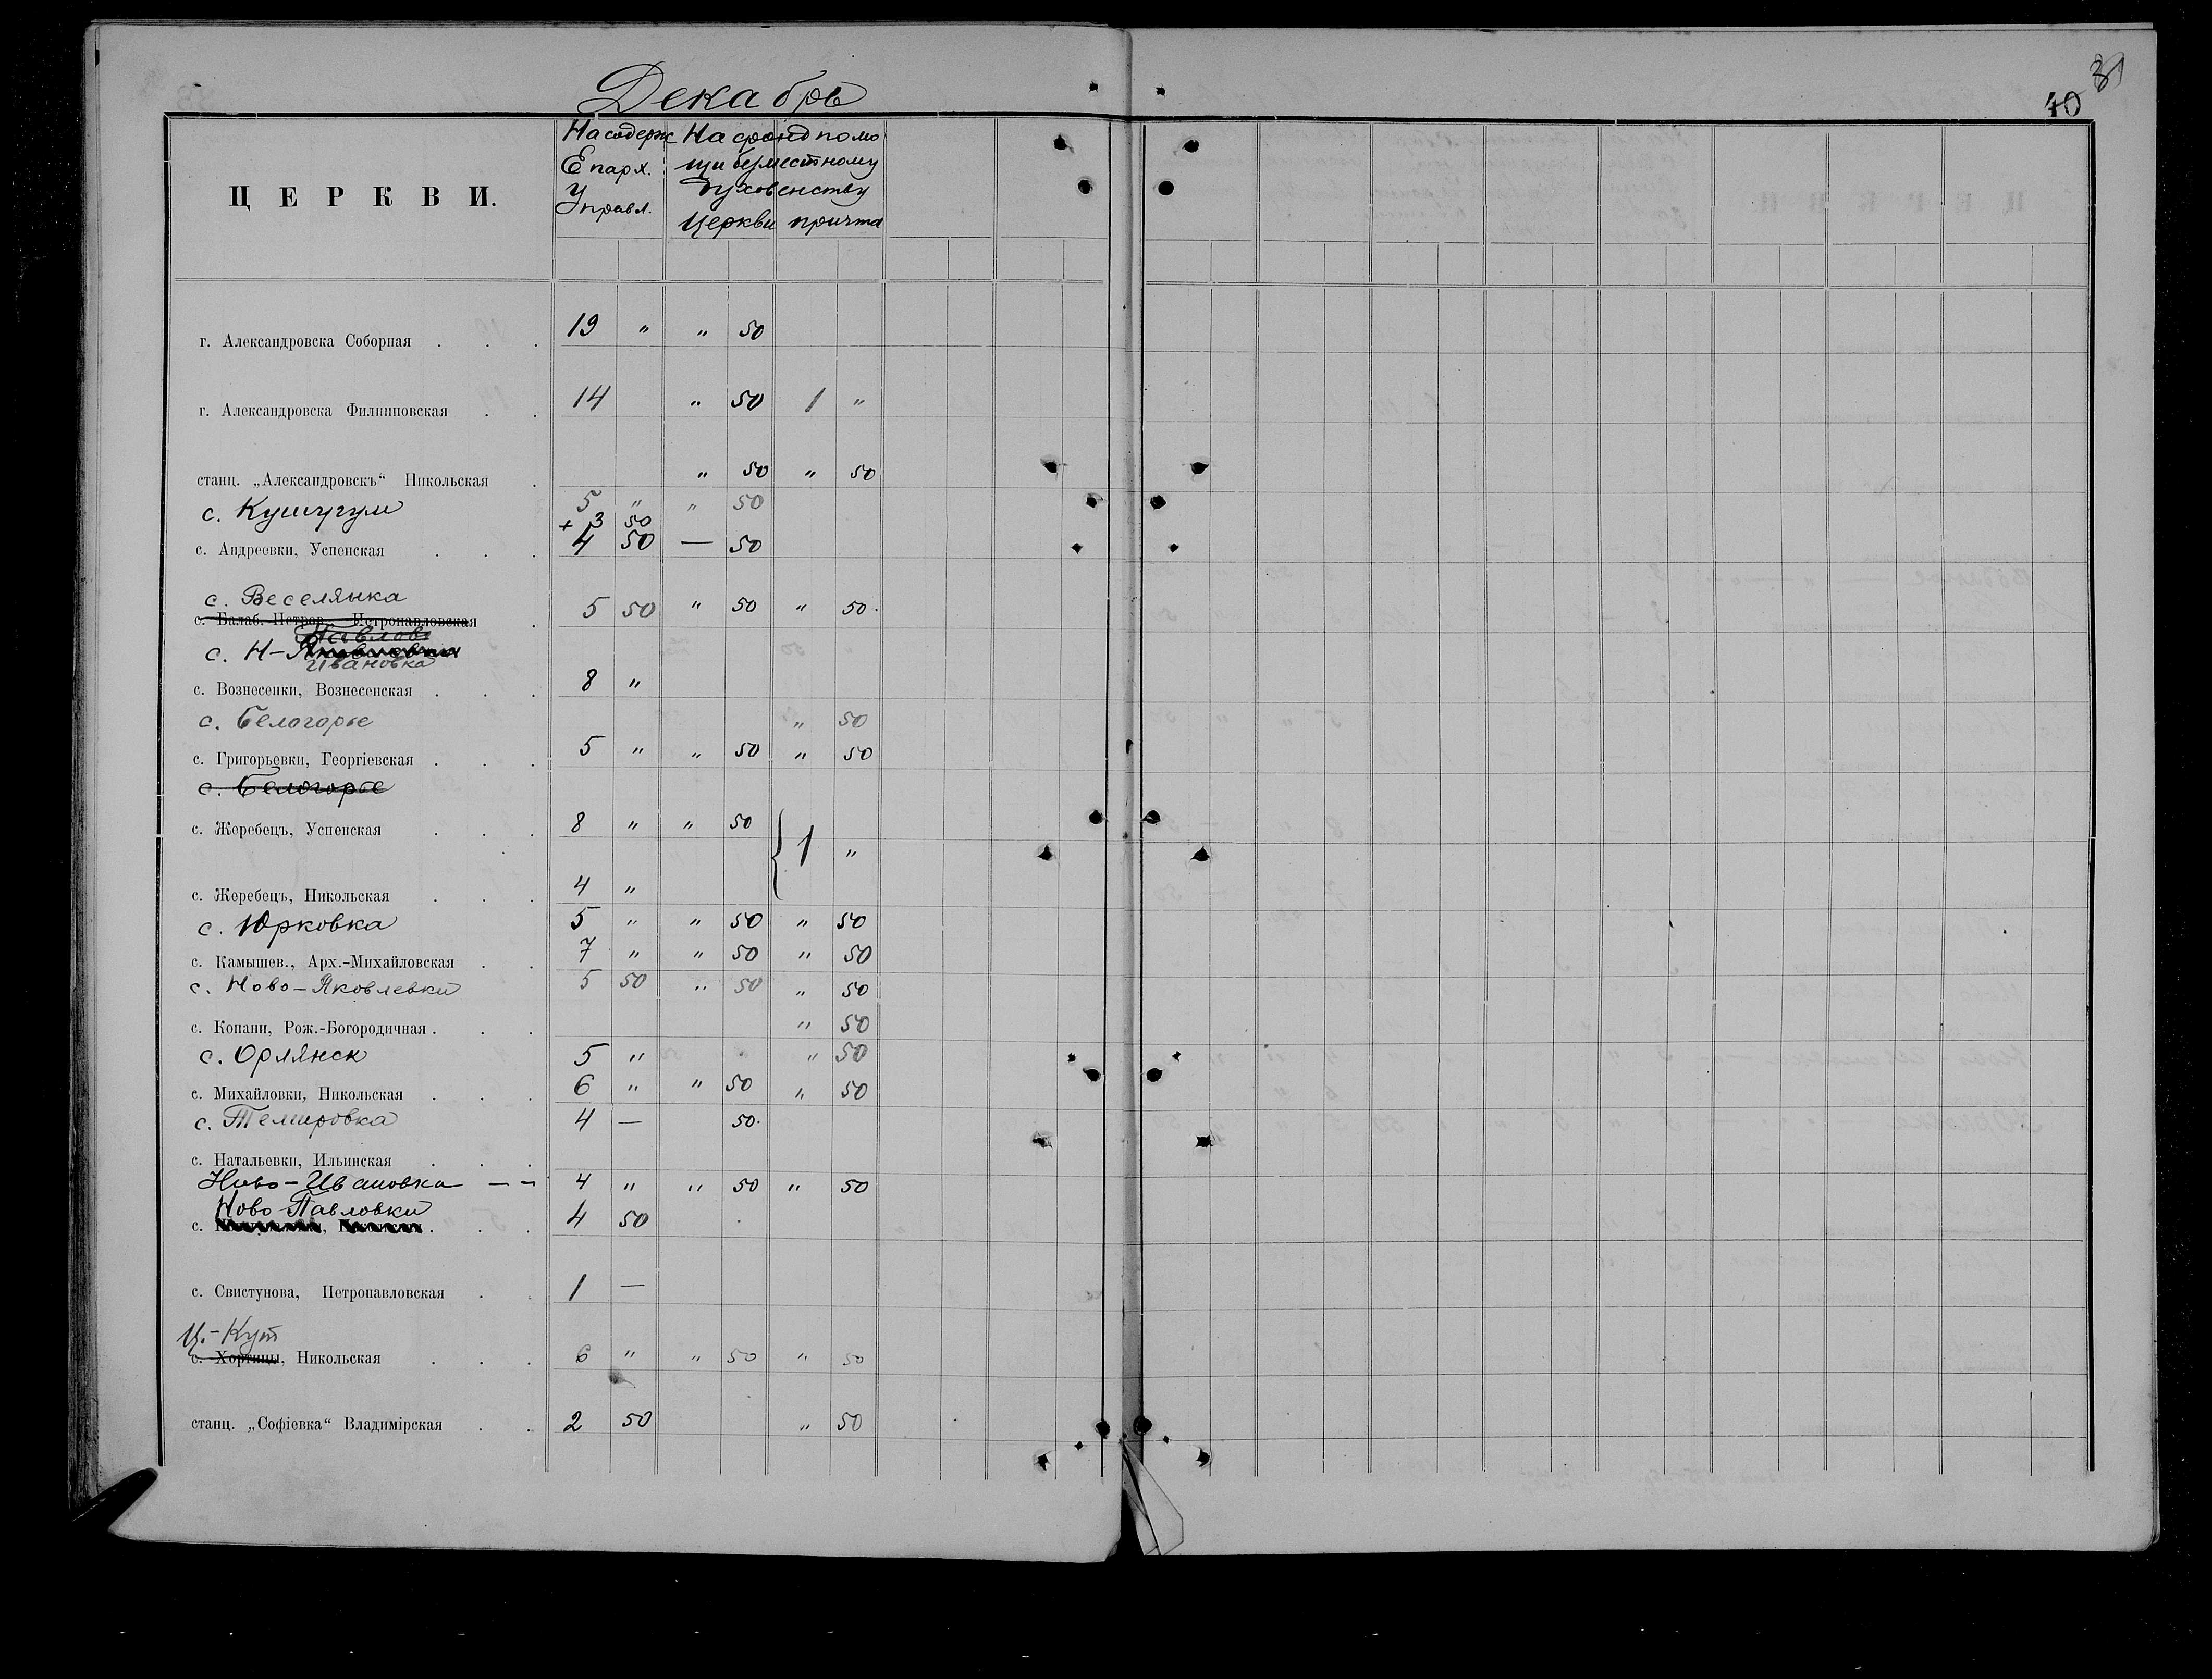 Декабрь
31
40
ЦЕРКВИ.
На содерж Епарх. Управл.
На фонд помо
щи безместному
духовенству
Церкви причта
г. Александровска Соборная . . . 19 " " 50
г. Александровска Филипповская . . 14 " 50 1 "
станц. „Александровскъ“ Никольская . " 50 " 50
с. Кушугум 5 " " 50
+ 3 50
с. Андреевки, Успенская . . . 4 50 — 50
с. Веселянка 5 50 " 50 " 50.
с. Балаб.-Петров., Петропавловская .
Павлов
с. Н-
Ивановка
с. Вознесенки, Вознесенская . . . 8 "
с. Белогорье " 50
с. Григорьевки, Георгіевская . . . 5 " " 50 " 50
с. Белогорье
с. Жеребецъ, Успенская . . . 8 " " 50
1 "
с. Жеребецъ, Никольская . . . 4 "
с. Юрковка 5 " " 50 " 50
с. Камышев., Арх.-Михайловская . . 7 " " 50 " 50
с. Ново-Яковлевки 5 50 " 50 " 50
с. Копани, Рож.-Богородичная . . . " 50
с. Орлянск 5 " " 50
с. Михайловки, Никольская . . . 6 " " 50 " 50
с. Темировка 4 — 50.
с. Натальевки, Ильинская . . .
Ново-Ивановка — — 4 " " 50 " 50
Ново-Павловки
с. . . . 4 50
с. Свистунова, Петропавловская . . 1 —
Ц.-Кут
с. Хортицы, Никольская . . . 6 " " 50 " 50
станц. „Софіевка“ Владимірская . . 2 50 " 50